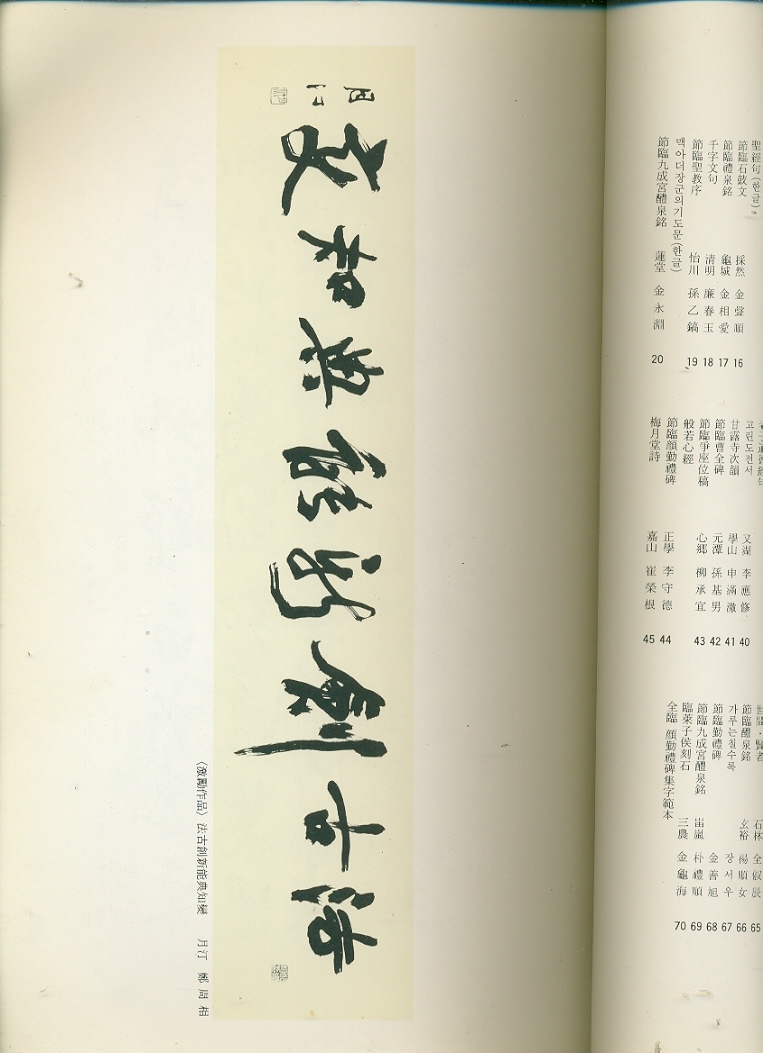 法古創新能典知變
月汀
〈激勵作品〉 法古創新能典知變 月汀 鄭周相
聖經句(한글)。
節臨石鼓文 採然 金聲順 16
節臨禮泉銘 龜城 金相愛 17
千字文句 清明 廉春玉 18
節臨聖教序 怡川 孫乙鎬 19
맥아더장군의기도문(한글)
節臨九成宮醴泉銘 蓮堂 金永淵 20
고린도전서 又湖 李應修 40
甘露寺次韻 學山 申滿澈 41
節臨曹全碑 元潭 孫基男 42
節臨爭座位稿 心鄉 柳承宜 43
般若心經
節臨顏勤禮碑 正學 李守德 44
梅月堂詩 嘉山 崔榮根 45
石林 全叔辰 65
節臨醴泉銘 玄裕 楊順女 66
가루는칠수록 장서우 67
節臨勤禮碑 金善旭 68
節臨九成宮醴泉銘 朴禮順 69
臨萊子侯刻石 三農 金龜海 70
全臨 顏勤禮碑集字範本